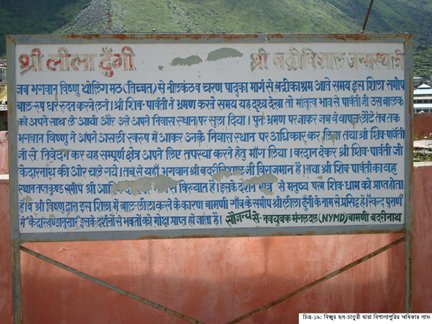 श्री लीला ढुँगी श्री बद्रीविशाल जन्मस्थली
जब भगवान विष्णु थोलिंग मठ (तिब्बत) से नीलकंठ चरण पादुका मार्ग से बद्रीकाश्रम आते समय इस शिला समीप
बाल रूप धर रुदन करने लगे। श्री शिव-पार्वती ने भ्रमण करते समय यह दृश्य देखा तो मातृत्व भाव से पार्वती ने उस बालक
को अपने साथ ले आयी और उसे अपने निवास स्थान पर सुला दिया। पुनः भ्रमण पर जाकर जब वे वापस लौटे तब तक
भगवान विष्णु ने अपने असली स्वरूप में आकर उनके निवास स्थान पर अधिकार कर लिया तथा श्री शिव-पार्वती
जी से निवेदन कर यह सम्पूर्ण क्षेत्र अपने लिए तपस्या करने हेतु माँग लिया। वरदान देकर श्री शिव-पार्वती जी
केदारनाथ की ओर चले गये। तब से यहाँ भगवान श्री जी विराजमान हैं। तथा श्री शिव-पार्वती का वह
स्थान तप्तकुण्ड समीप श्री से विख्यात है। इसके दर्शन से मनुष्य परम शिव-धाम को प्राप्त होता
है। श्री विष्णु द्वारा इस शिला में बाल-लीला करने के कारण बामणी गाँव के समीप श्री लीला ढुँगी के नाम से प्रसिद्ध है। स्कन्द पुराण
में इसके दर्शनों से भक्तों को मोक्ष प्राप्त हो जाता है। सौजन्य से - नवयुवक मंगल दल (NYMD) बामणी बदरीनाथ
चित्र-१८: विष्णुर छल-चातुरी द्वारा विशालापुरिर अधिकार लाभ